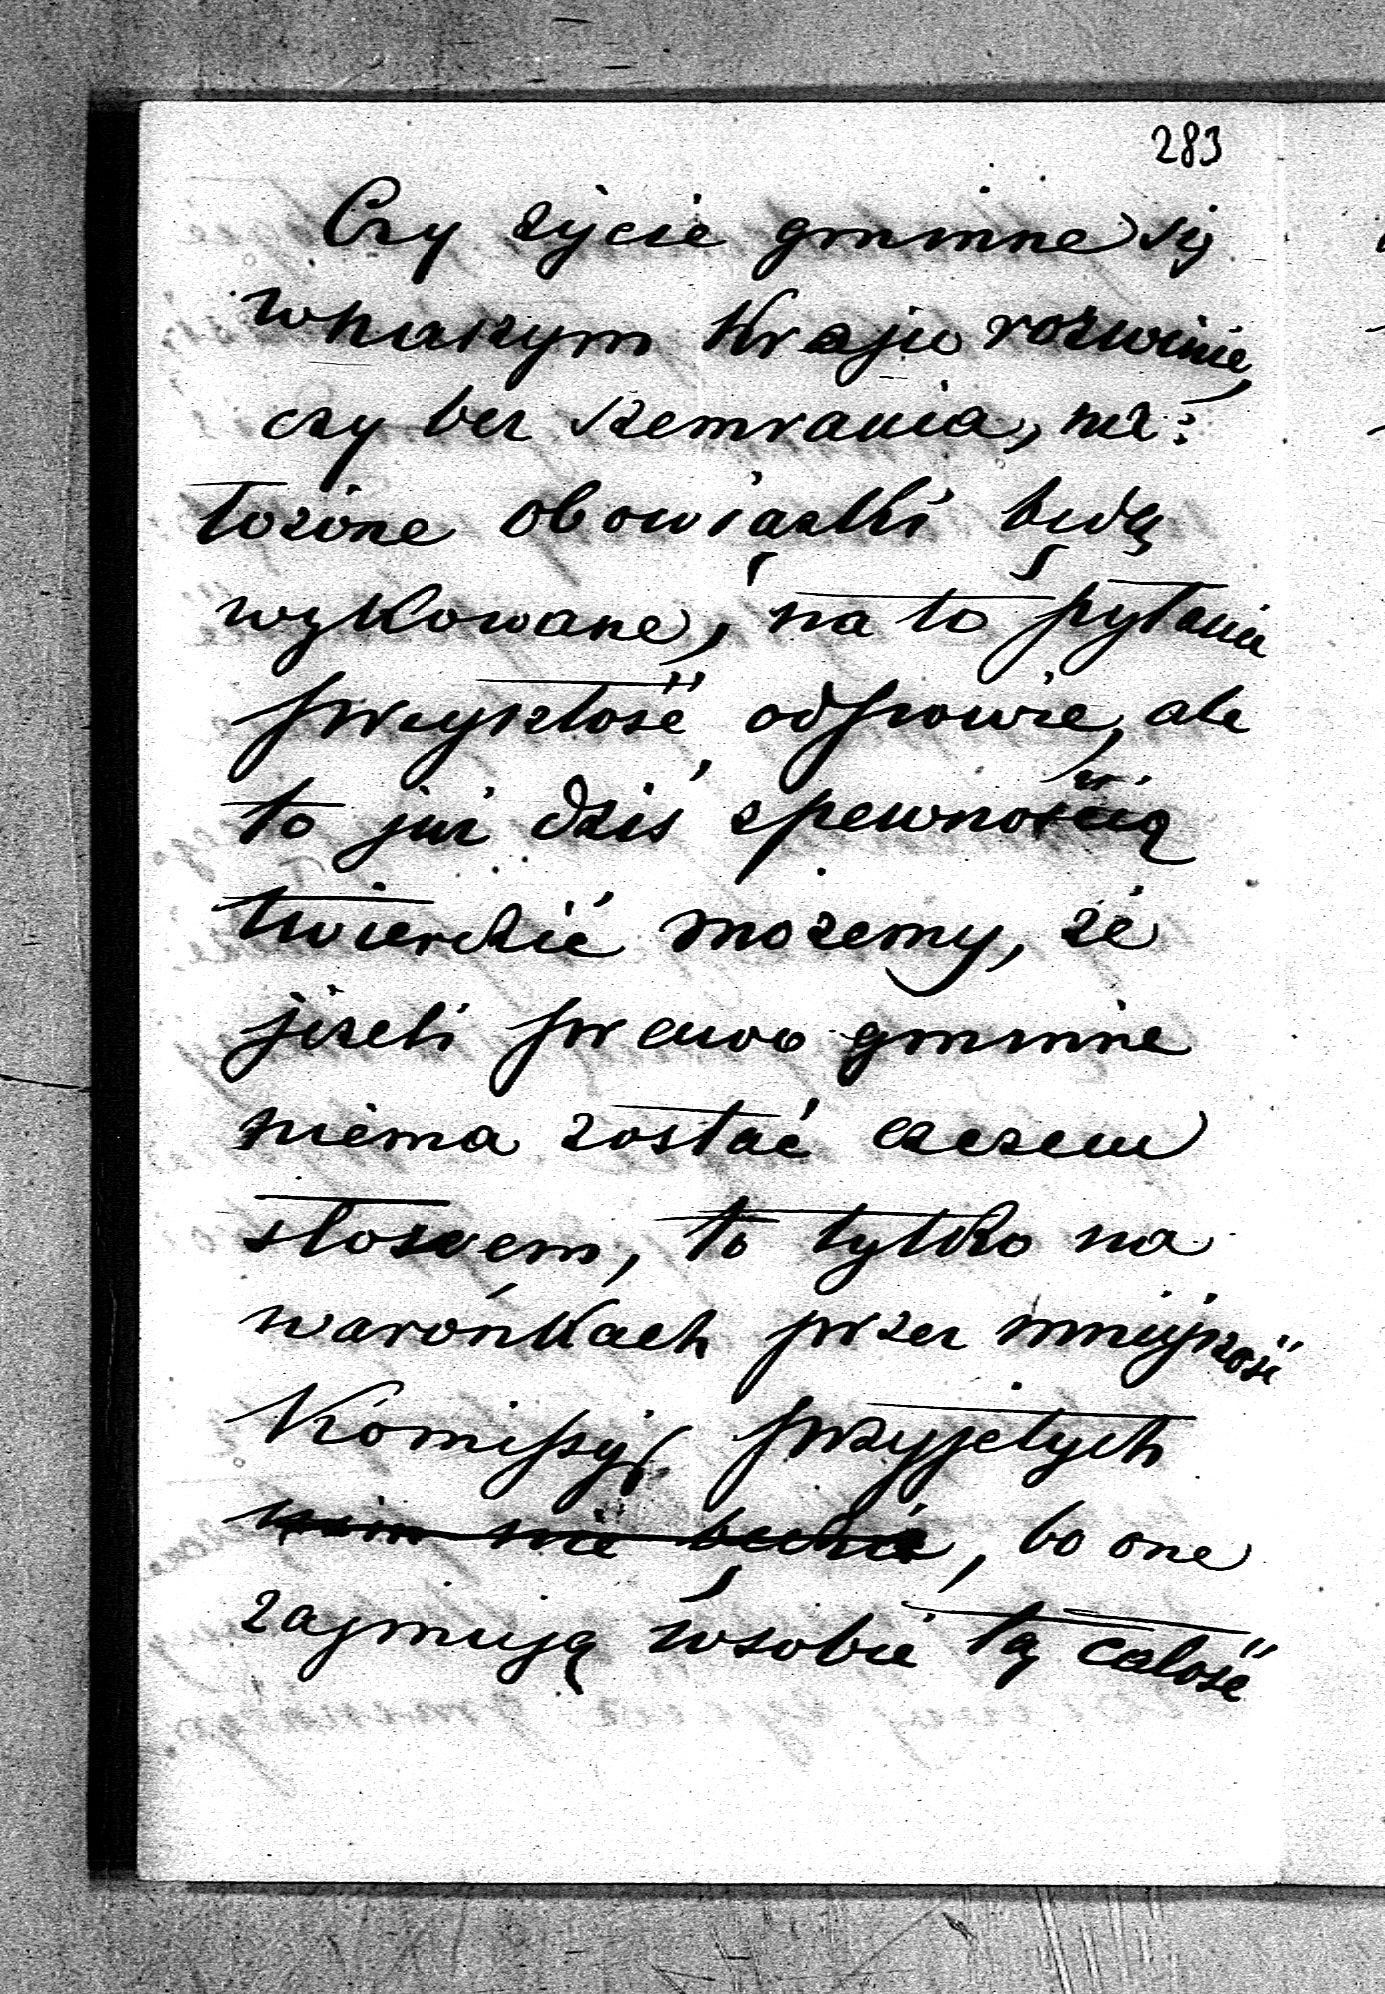 283
Czy życie gminne się
w naszym Kraju rozwinie,
czy bez szemrania, na:
łożone obowiązki będą
wykowane, na to pytania
przyszłość odpowie, ale
to już dziś z pewnością
twierdzić możemy, że
jeżeli prawo gminne
niema zostać czczem
słowem, to tylko na
warónkach przez mniejszość
Komissyi przyjętych
, bo one
zajmują w sobie tą całość